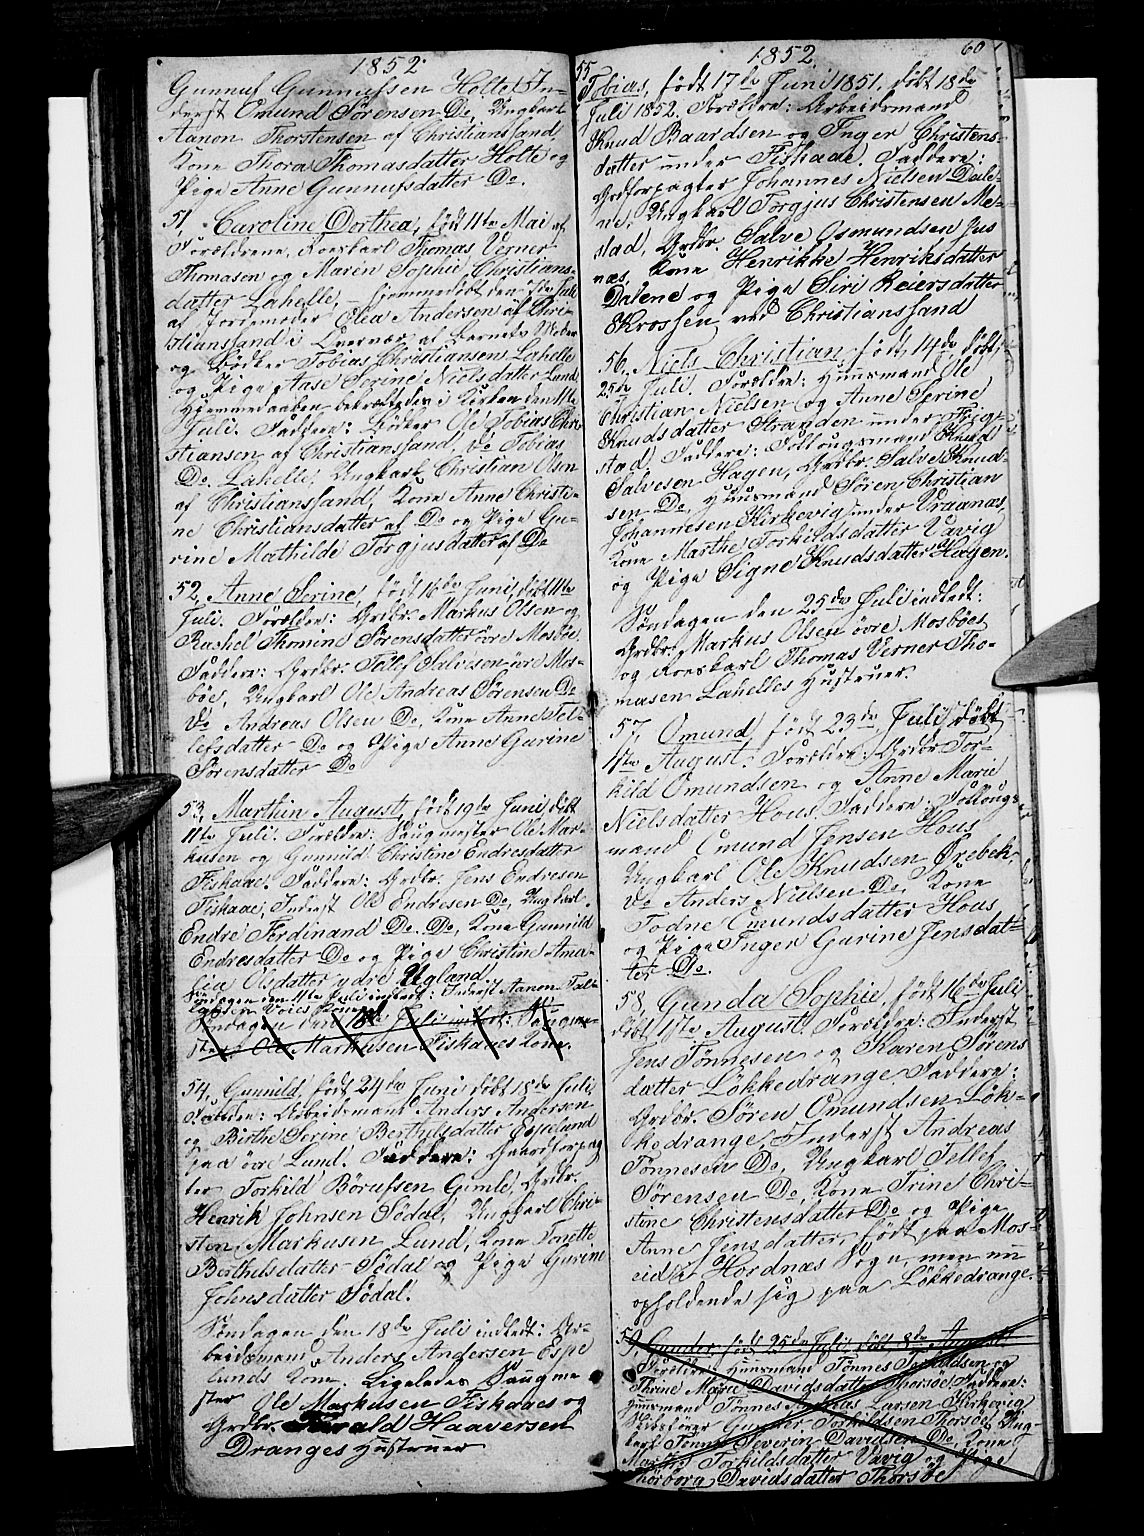 1852
Gunnuf Gunnufsen Holte, In-
derst Omund Sørensen Do, Ungkarl
Aanon Thorstensen af Christianssand
Kone Thora Thomasdatter Holte og
Pige Anne Gunnufsdatter Do.
51, Caroline Dorthea, født 11te Mai af
Forældrene, Roeskarl Thomas Verner
Thomasen og Maren Sophie Christians-
datter Lahelle, – hjemmedøbt den Juli
af Jordemoder Elea Andersen af Chri-
stianssand i Overvær af Barnets Moder
og Bødker Tobias Christiansens Lahelle
og Pige Aase Serine Nielsdatter Lund
Hjemmedaaben bekræftedes i Kirken den 11te
Juli. Faddere: Bødker Ole Tobias Chri-
stiansen af Christianssand, do Tobias
Do. Lahelle, Ungkarl Christian Olsen
af Christianssand, Kone Anne Christi-
ne Christiansdatter af Do og Pige Gu-
rine Mathilde Torgjusdatter af Do
52, Anne Serine, født 16de Juni, døbt 11te
Juli. Forældre: Grdbr. Markus Olsen og
Rachel Thomine Sørensdatter øvre Mosbøe.
Faddere: Grdbr: Tallef Salvesen øvre Mos-
bøe, Ungkarl Ole Andreas Sørensen Do
do Andreas Olsen Do, Kone Anne Tel-
lefsdatter Do og Pige Anne Gurine
Sørensdatter Do
53, Marthin August, født 19de Juni døbt
11te Juli. Forældre: Saugmester Ole Mar-
kusen og Gunnild Christine Endresdatter
Fiskaae. Faddere: Grdbr. Jens Endresen
Fiskaae, Inderst Ole Endresen Do, Ungkarl
Endre Ferdinand Do. Do, Kone Gunnild
Endresdatter Do og Pige Christine Ama-
lia Olsdatter ydre Ugland
Søndagen den 11te Juli indledt: Inderst Aanon Tal-
lefsen Voies Kone
Søndagen den 18de Juli indledt: Saugme-
ster Ole Markusen Fiskaaes Kone.
54, Gunnild, født 24de Juni døbt 18de Juli
Forældre: Arbeidsmand Anders Andersen
og Birthe Serine Berthelsdatter Espelund
paa øvre Lund. Faddere: Gaardforpag
ter Torkild Børufsen Gimle, Grdbr.
Henrik Johnsen Sødal, Ungkarl Chri-
sten Markusen Lund, Kone Tonette
Berthelsdatter Sødal og Pige Gurine
Johnsdatter Sødal.
Søndagen den 18de Juli indledt: Ar-
beidsmand Anders Andersen Espe
lunds Kone. Ligeledes Saugme
ster Ole Markusen Fiskaaes og
Grdbr. Harald Haaversen
Dranges Hustruer
1852
60
55
Tobias, født 17de Juni 1851. døbt 18de
Juli 1852. Forældre: Arbeidsmand
Knud Baardsen og Inger Christens-
datter under Fiskaae. Faddere:
Grdforpagter Johannes Nielsen Dale-
ne, Ungkarl Torgjus Christensen Me-
stad, Grdbr. Salve Osmundsen Jus
næs, Kone Henrikke Henriksdatter
Dalene og Pige Siri Reiersdatter
Krossen ved Christianssand
56, Niels Christian, født 14de døbt
25de Juli. Forældre: Huusmand Ole
Christian Nielsen og Anne Serine
Knudsdatter Stranden under Frig-
stad. Faddere: Follougsmand Knud
Salvesen Hagen, Grdbr. Salve Knud-
sen Do, Huusmand Søren Christian
Johannesen Kirkevig under Vraanas,
Kone Marthe Torkildsdatter Vavig
og Pige Signe Knudsdatter Hagen.
Søndagen den 25de Juli indledt:
Grdbr. Markus Olsen øvre Mosbøes
og Roeskarl Thomas Verner Tho-
masen Lahelles Hustruer.
57, Omund, født 23de Juli døbt
1ste August. Forældre: Grdbr Tor-
kild Omundsen og Anne Marie
Nielsdatter Hous. Faddere: Follougs-
mand Omund Jensen Hous
Ungkarl Ole Knudsen Ørebek,
do Anders Nielsen Do, Kone
Todne Omundsdatter Hous
og Pige Inger Gurine Jensdat-
ter Do.
58, Gunda Sophie, født 16de Juli
døbt 1ste August. Forældre: Inderst
Jens Tønnesen og Karen Sørens
datter Løkkedrange. Faddere:
Grdbr. Søren Omundsen Løk-
kedrange, Inderst Andreas
Tønnesen Do, Ungkarl Tellef
Sørensen Do, Kone Trine Chri-
stine Christensdatter Do og Pige
Anne Jensdatter, født paa Mos-
eid i Hordnæs Sogn, men nu
opholdende sig paa Løkkedrange.
59, Gunder født 25de Juli, døbt 8de August
Forældre: Huusmand Tønnes Torkildsen og
Thrine Marie Davidsdatter Thorsøe. Faddere:
Huusmand Tønnes Andreas Larsen Kirkevig
Gunder Torkildsen Thorsøe, Ung-
karl Tønnes Severin Davidsen Do, Kone
Marthe Torkildsdatter Vavig og Pige
Thorborg Davidsdatter Thorsøe